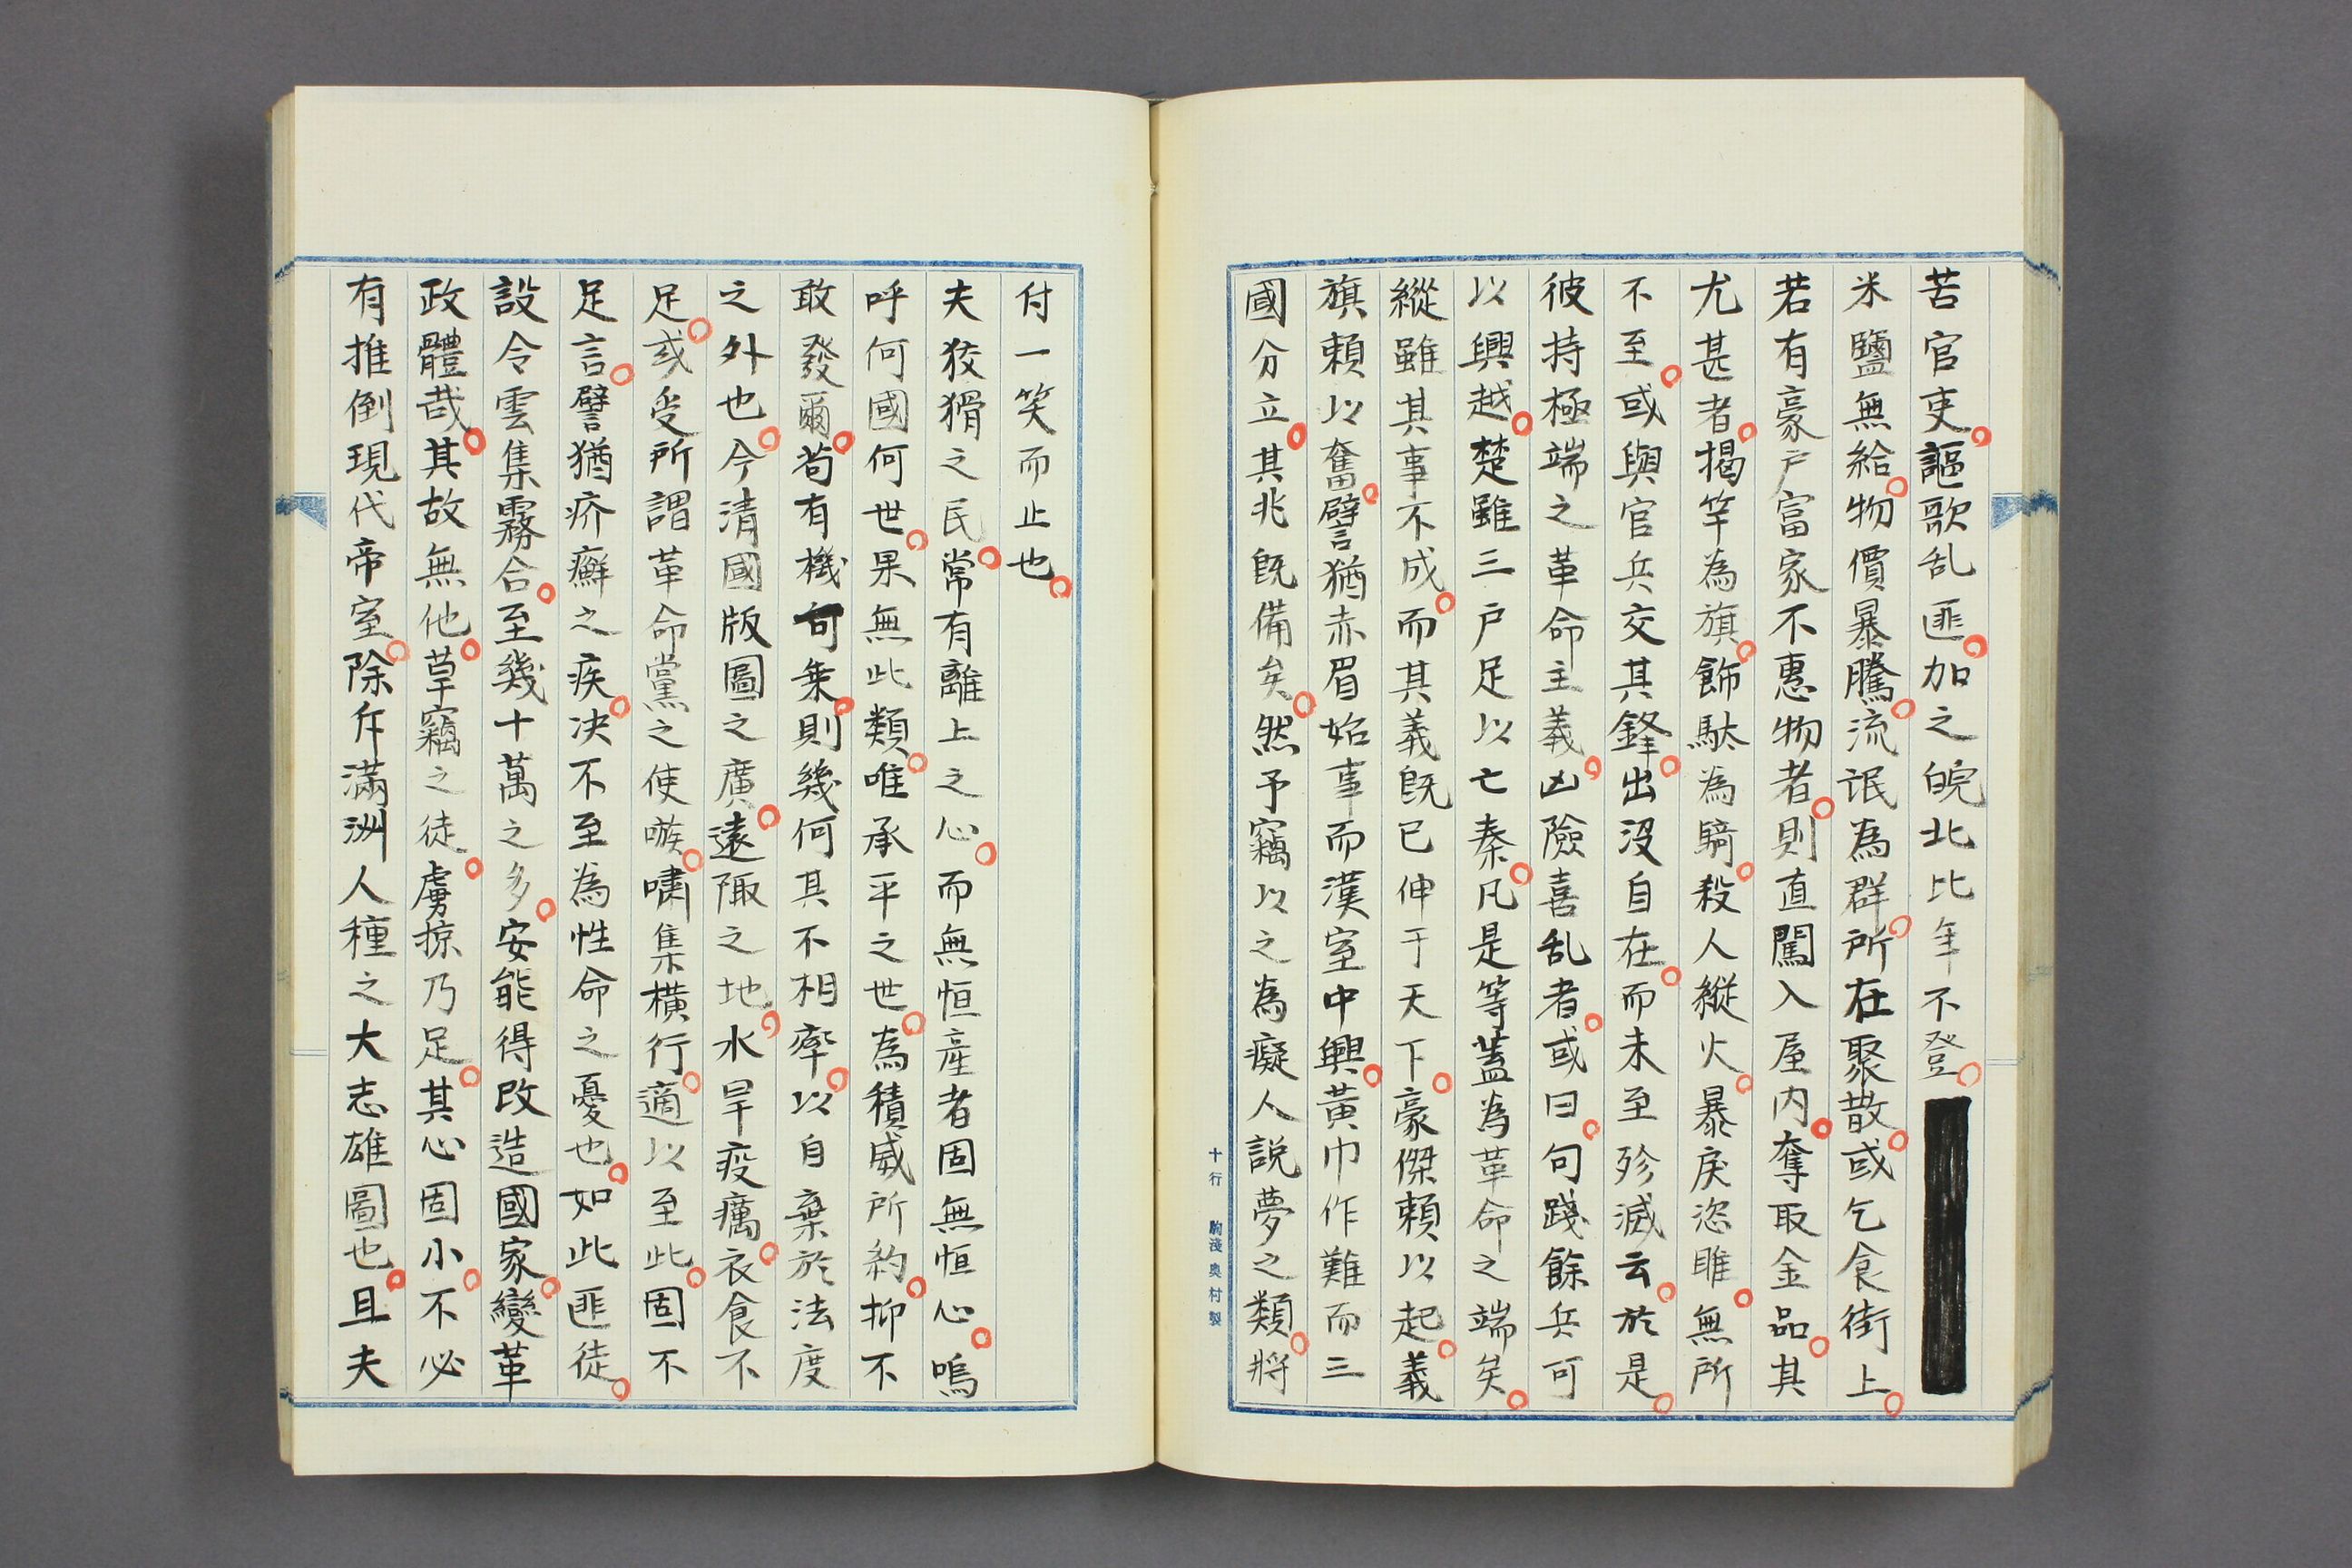 苦官吏。謳歌乱匪。加之皖北比年不登。
米鹽無給。物價暴騰。流氓為群。所在聚散。或乞食街上。
若有豪戸富家不惠物者。則直闖入屋内。奪取金品。其
尤甚者。揭竿為旗。飾駄為騎。殺人縱火。暴戻恣睢。無所
不至。或與官兵交其鋒。出沒自在。而未至殄滅云。於是。
彼持極端之革命主義。凶險喜乱者。或曰。句踐餘兵可
以興越。楚雖三戸足以亡秦。凡是等蓋為革命之端矣。
縱雖其事不成。而其義既已伸于天下。豪傑頼以起。義
旗頼以奮。譬猶赤眉始事而漢室中興。黃巾作難而三
國分立。其兆既備矣。然予竊以之為癡人説夢之類。將
十行　駒淺奥村製
付一笑而止也。
夫狡猾之民。常有離上之心。而無恒產者固無恒心。嗚
呼何國何世。果無此類。唯承平之世。為積威所約。抑不
敢發爾。苟有機可乗。則幾何其不相率。以自棄於法度
之外也。今清國版圖之廣。遠陬之地。水旱疫癘。衣食不
足。或受所謂革命黨之使嗾。嘯集橫行。適以至此。固不
足言。譬猶疥癬之疾。决不至為性命之憂也。如此匪徒。
設令雲集霧合。至幾十萬之多。安能得改造國家。變革
政體哉。其故無他。草竊之徒。虜掠乃足。其心固小。不必
有推倒現代帝室。除斥滿洲人種之大志雄圖也。且夫